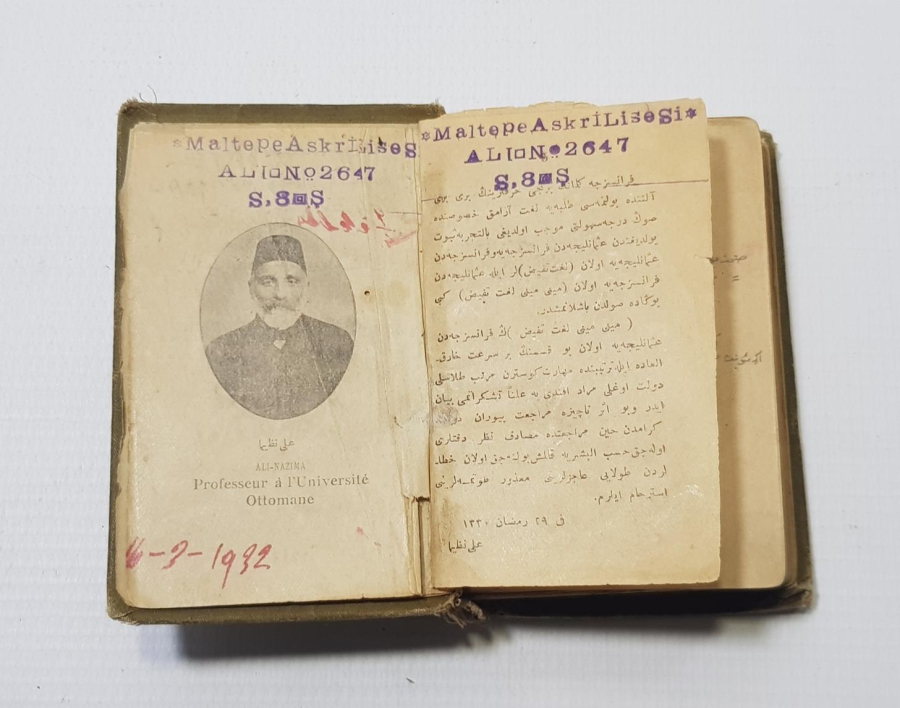 *MaltepeAskrİLiseS
ALI□No2647
S,8▣Ş
علی نظیما
ALI-NAZIMA
Professeur á l'Université
Ottomane
6-3-1932
*MaltepeAskrİLiseSi*
ALI□No2647
S,8▣Ş
فرانسزجه حرفلرینڭ بری بری
آلتنده بولنمه‌سی طلبه‌یه لغت آرامق خصوصنده
صوڭ درجه سهولتی موجب اولدیغی بالتجربه ثبوت
بولدیغندن عثمانلیجه‌دن فرانسزجه‌یه و فرانسزجه‌دن
عثمانلیجه‌یه اولان (لغت تفیض)لر ایله عثمانلیجه‌دن
فرانسزجه‌یه اولان (مینی مینی لغت تفیض) کبی
بوڭاده صولدن باشلانمشدر.
( مینی مینی لغت تفیض )ڭ فرانسزجه‌دن
عثمانلیجه‌یه اولان بو قسمنڭ بر سرعت خارق‌
العاده ایله ترتیبنده مهارت کوسترن مرتب طلاسلی
دولت اوغلی مراد افندی‌یه علناً تشکراتمی بیان
ایدر وبو اثر ناچیزه مراجعت بیوران
کرامدن حین مراجعتده مصادف نظر دقتلری
اوله‌جق حسب البشریه قالمش بوله‌جق اولان خطا
لردن طولایی عاجزلرینی معذور طوتمه‌لرینی
استرحام ایلرم.
فی ٢٩ رمضان ١٣٣٠
علی نظیما